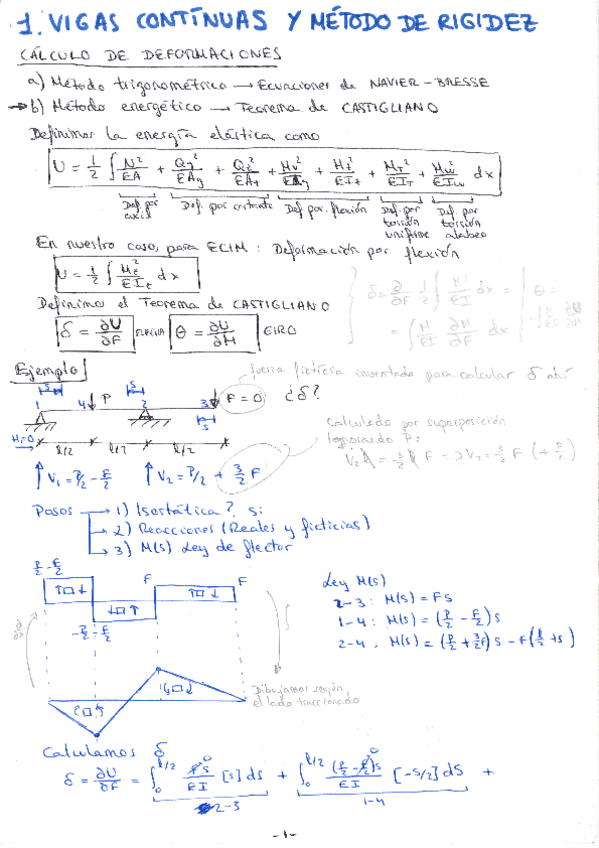 1. VIGAS CONTÍNUAS Y MÉTODO DE RIGIDEZ
CÁLCULO DE DEFORMACIONES
a) Método trigonométrico → Ecuaciones de NAVIER-BRESSE
→ b) Método energético → Teorema de CASTIGLIANO
Definimos la energía elástica como
U = 1/2 ∫ N²/EA + Qy²/EAy + Qz²/EAt + Mv²/EIy + Mt²/EIt + MT²/EIT + Mw²/EIw dx
Def. por axil
Def. por cortante
Def. por flexión
Def. por torsión uniforme
Def. por torsión alabeo
En nuestro caso, para ECIM: Deformación por flexión
U = 1/2 ∫ Mt²/EIt dx
δ = ∂/∂F 1/2 ∫ M²/EI dx =
= ∫ M/EI ∂M/∂F dx
θ =
Definimos el Teorema de CASTIGLIANO
δ = ∂U/∂F FLECHA θ = ∂U/∂M GIRO
Ejemplo
fuerza ficticia inventada para calcular δ ahí
s s
1 4 P 2 3 F = 0 ¿δ?
s
H=0 l/2 l/2 l/2
calculado por superposición
ignorando P:
V₁ = P/2 - F/2 V₂ = P/2 + 3/2 F
Pasos → 1) Isostática?, si:
→ 2) Reacciones (Reales y ficticias)
→ 3) M(s) Ley de flector
P/2 - F/2 F F
-P/2 - F/2
Ley M(s)
2-3: M(s) = Fs
1-4: M(s) = (P/2 - F/2)s
2-4: M(s) = (P/2 + 3/2F)s - F(l/2 + s)
Dibujamos según
el lado traccionado
Calculamos δ
δ = ∂U/∂F = ∫₀^l/2 Fs/EI [s] ds + ∫₀^l/2 (P/2 - F/2)s/EI [-s/2] ds +
2-3 1-4
-1-